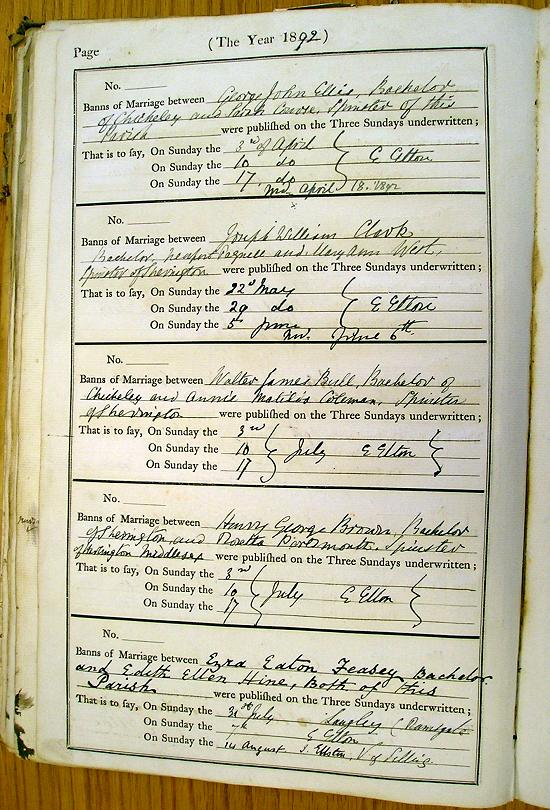 Page
(The Year 1892)
No.
Banns of Marriage between George John Ellis, Bachelor
of Chicheley and Sarah Spinster of this
Parish were published on the Three Sundays underwritten;
That is to say, On Sunday the 3rd of April
On Sunday the 10 do E Elton
On Sunday the 17 do
April 18. 1892
No.
Banns of Marriage between Joseph William Clark
Bachelor, Newport Pagnell and Mary Ann West,
Spinster of Sherington were published on the Three Sundays underwritten;
That is to say, On Sunday the 22d May
On Sunday the 29 do E Elton
On Sunday the 5th June
June 6th
No.
Banns of Marriage between Walter James Bull, Bachelor of
Chicheley and Annie Matilda Coleman, Spinster
of Sherington were published on the Three Sundays underwritten;
That is to say, On Sunday the 3rd
On Sunday the 10 July E Elton
On Sunday the 17
No.
Banns of Marriage between Henry George Brown, Bachelor
of Sherington and Portsmouth, Spinster
of Middlesex were published on the Three Sundays underwritten;
That is to say, On Sunday the 3rd
On Sunday the 10 July E Elton
On Sunday the 17
No.
Banns of Marriage between Ezra Eaton Feasey, Bachelor
and Edith Ellen Hine, Both of this
Parish were published on the Three Sundays underwritten;
That is to say, On Sunday the 31st July Langley (Ramsgate
On Sunday the 7th E Elton
On Sunday the 14 August